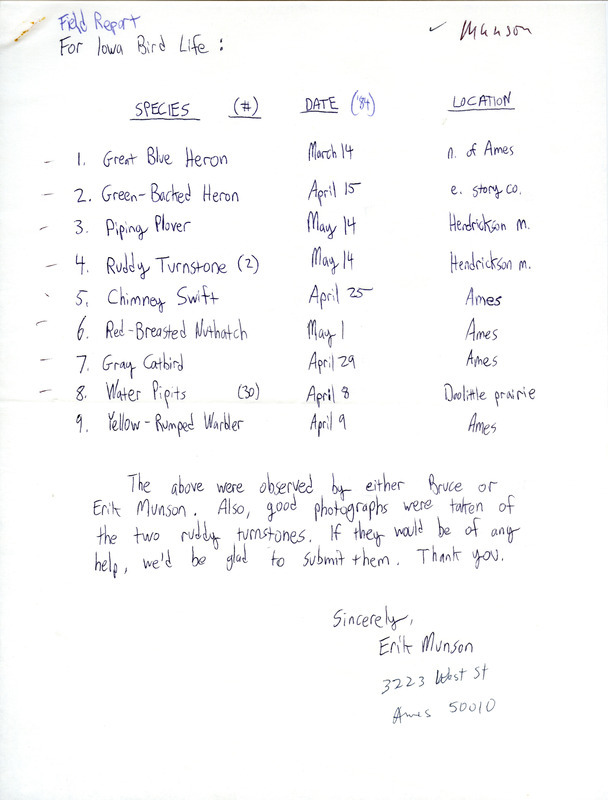 Field Report
For Iowa Bird Life :
✓ Munson
SPECIES (#) DATE ('84) LOCATION
- 1. Great Blue Heron March 14 n. of Ames
- 2. Green-Backed Heron April 15 e. story co.
- 3. Piping Plover May 14 Hendrickson m.
- 4. Ruddy Turnstone (2) May 14 Hendrickson m.
5. Chimney Swift April 25 Ames
- 6. Red-Breasted Nuthatch May 1 Ames
- 7. Gray Catbird April 29 Ames
- 8. Water Pipits (30) April 8 Doolittle prairie
9. Yellow-Rumped Warbler April 9 Ames
The above were observed by either Bruce or
Erik Munson. Also, good photographs were taken of
the two ruddy turnstones. If they would be of any
help, we'd be glad to submit them. Thank you.
Sincerely,
Erik Munson
3223 West St
Ames 50010